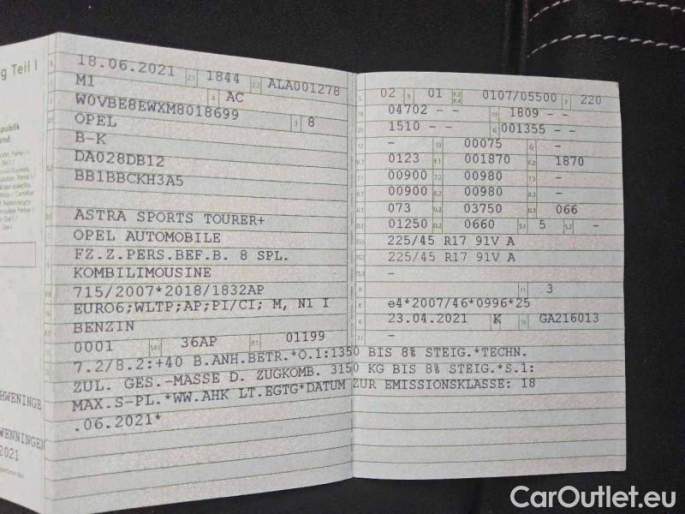 g Teil I
18.06.2021 1844 ALA001278
M1 AC
W0VBE8EWXM8018699
OPEL 8
B-K
DA028DB12
BB1BBCKH3A5
ASTRA SPORTS TOURER+
OPEL AUTOMOBILE
FZ.Z.PERS.BEF.B. 8 SPL.
KOMBILIMOUSINE
715/2007*2018/1832AP
EURO6;WLTP;AP;PI/CI; M, N1 I
BENZIN
0001 36AP 01199
02 01 0107/05500 220
04702 - - 1809 - -
1510 - - 001355 - -
- 00075 -
0123 001870 1870
00900 00980 -
00900 00980 -
073 03750 066
01250 0660 5 -
225/45 R17 91V A
225/45 R17 91V A
-
- 3
e4*2007/46*0996*25
23.04.2021 K GA216013
7.2/8.2:+40 B.ANH.BETR.*O.1:1350 BIS 8% STEIG.*TECHN.
ZUL. GES.-MASSE D. ZUGKOMB. 3150 KG BIS 8% STEIG.*S.1:
MAX.S-PL.*WW.AHK LT.EGTG*DATUM ZUR EMISSIONSKLASSE: 18
.06.2021*
HWENINGE
WENNINGEN
2021
CarOutlet.eu